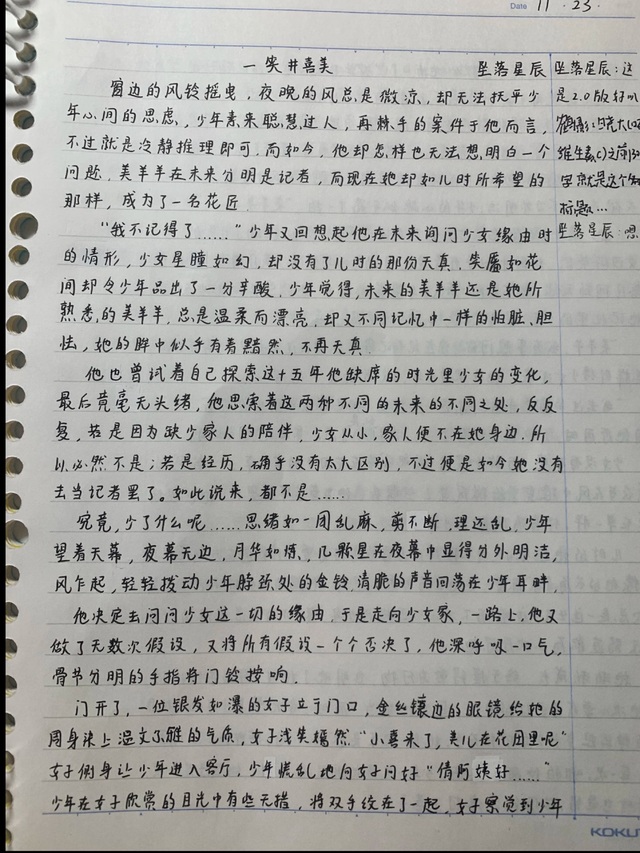 Date 11 · 23 ·
一笑井喜美 坠落星辰
窗边的风铃摇曳，夜晚的风总是微凉，却无法抚平少
年心间的思虑，少年素来聪慧过人，再棘手的案件于他而言，
不过就是冷静推理即可。而如今，他却怎样也无法想明白一个
问题，美羊羊在未来分明是记者，而现在她却如儿时所希望的
那样，成为了一名花匠。
“我不记得了……”少年又回想起他在未来询问少女缘由时
的情形，少女星瞳如幻，却没有了儿时的那份天真，笑靥如花
间却令少年品出了一分辛酸，少年觉得，未来的美羊羊还是她所
熟悉的美羊羊，总是温柔而漂亮，却又不同记忆中一样的怕脏、胆
怯，她的眸中似乎有着黯然，不再天真。
他也曾试着自己探索这十五年他缺席的时光里少女的变化，
最后竟毫无头绪，他思索着这两种不同的未来的不同之处，反反
复，若是因为缺少家人的陪伴，少女从小，家人便不在她身边，所
以必然不是；若是经历，确乎没有太大区别，不过便是如今她没有
去当记者罢了。如此说来，都不是……
究竟，少了什么呢……思绪如一团乱麻，剪不断，理还乱，少年
望着天幕，夜幕无边，月华如练，几颗星在夜幕中显得分外明洁，
风乍起，轻轻拨动少年脖颈处的金铃，清脆的声音回荡在少年耳畔，
他决定去问问少女这一切的缘由，于是走向少女家，一路上，他又
做了无数次假设，又将所有假设一个个否决了，他深呼吸一口气，
骨节分明的手指将门铃按响。
门开了，一位银发如瀑的女子立于门口，金丝镶边的眼镜给她的
周身染上温文尔雅的气质，女子浅笑嫣然“小喜来了，美儿在花园里呢”
女子侧身让少年进入客厅，少年慌乱地向女子问好“倩阿姨好……”
少年在女子欣赏的目光中有些无措，将双手绞在了一起，女子察觉到少年
坠落星辰：这
是2.0版好叭
维生素(c)之前的
字就是这个
标题…
坠落星辰：嗯
KOKU